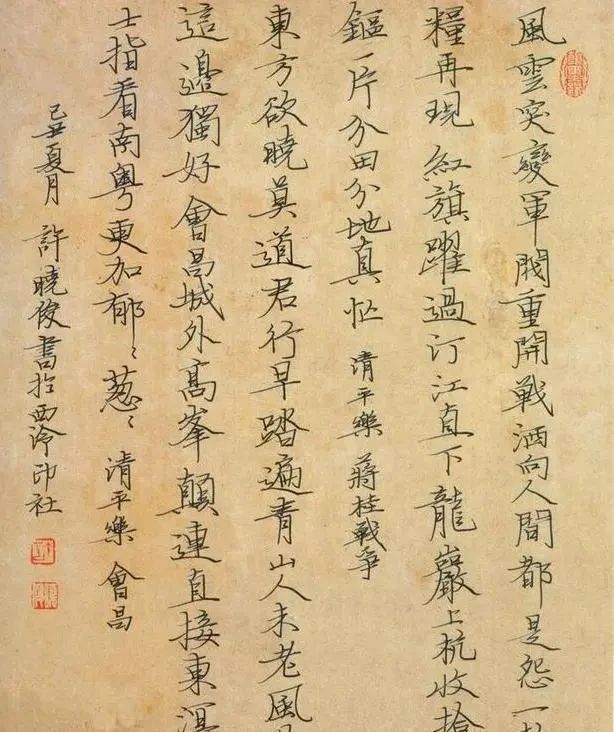 風雲突變軍閥重開戰洒向人間都是怨一
糧再現紅旗躍過汀江直下龍巖上杭收拾
鏂一片分田分地真忙 清平樂 蔣桂戰爭
東方欲曉莫道君行早踏遍青山人未老風
這邊獨好會昌城外高峯顛連直接東溟
士指看南粵更加郁〻葱〻 清平樂 會昌
己丑夏月 許曉俊書於西泠印社